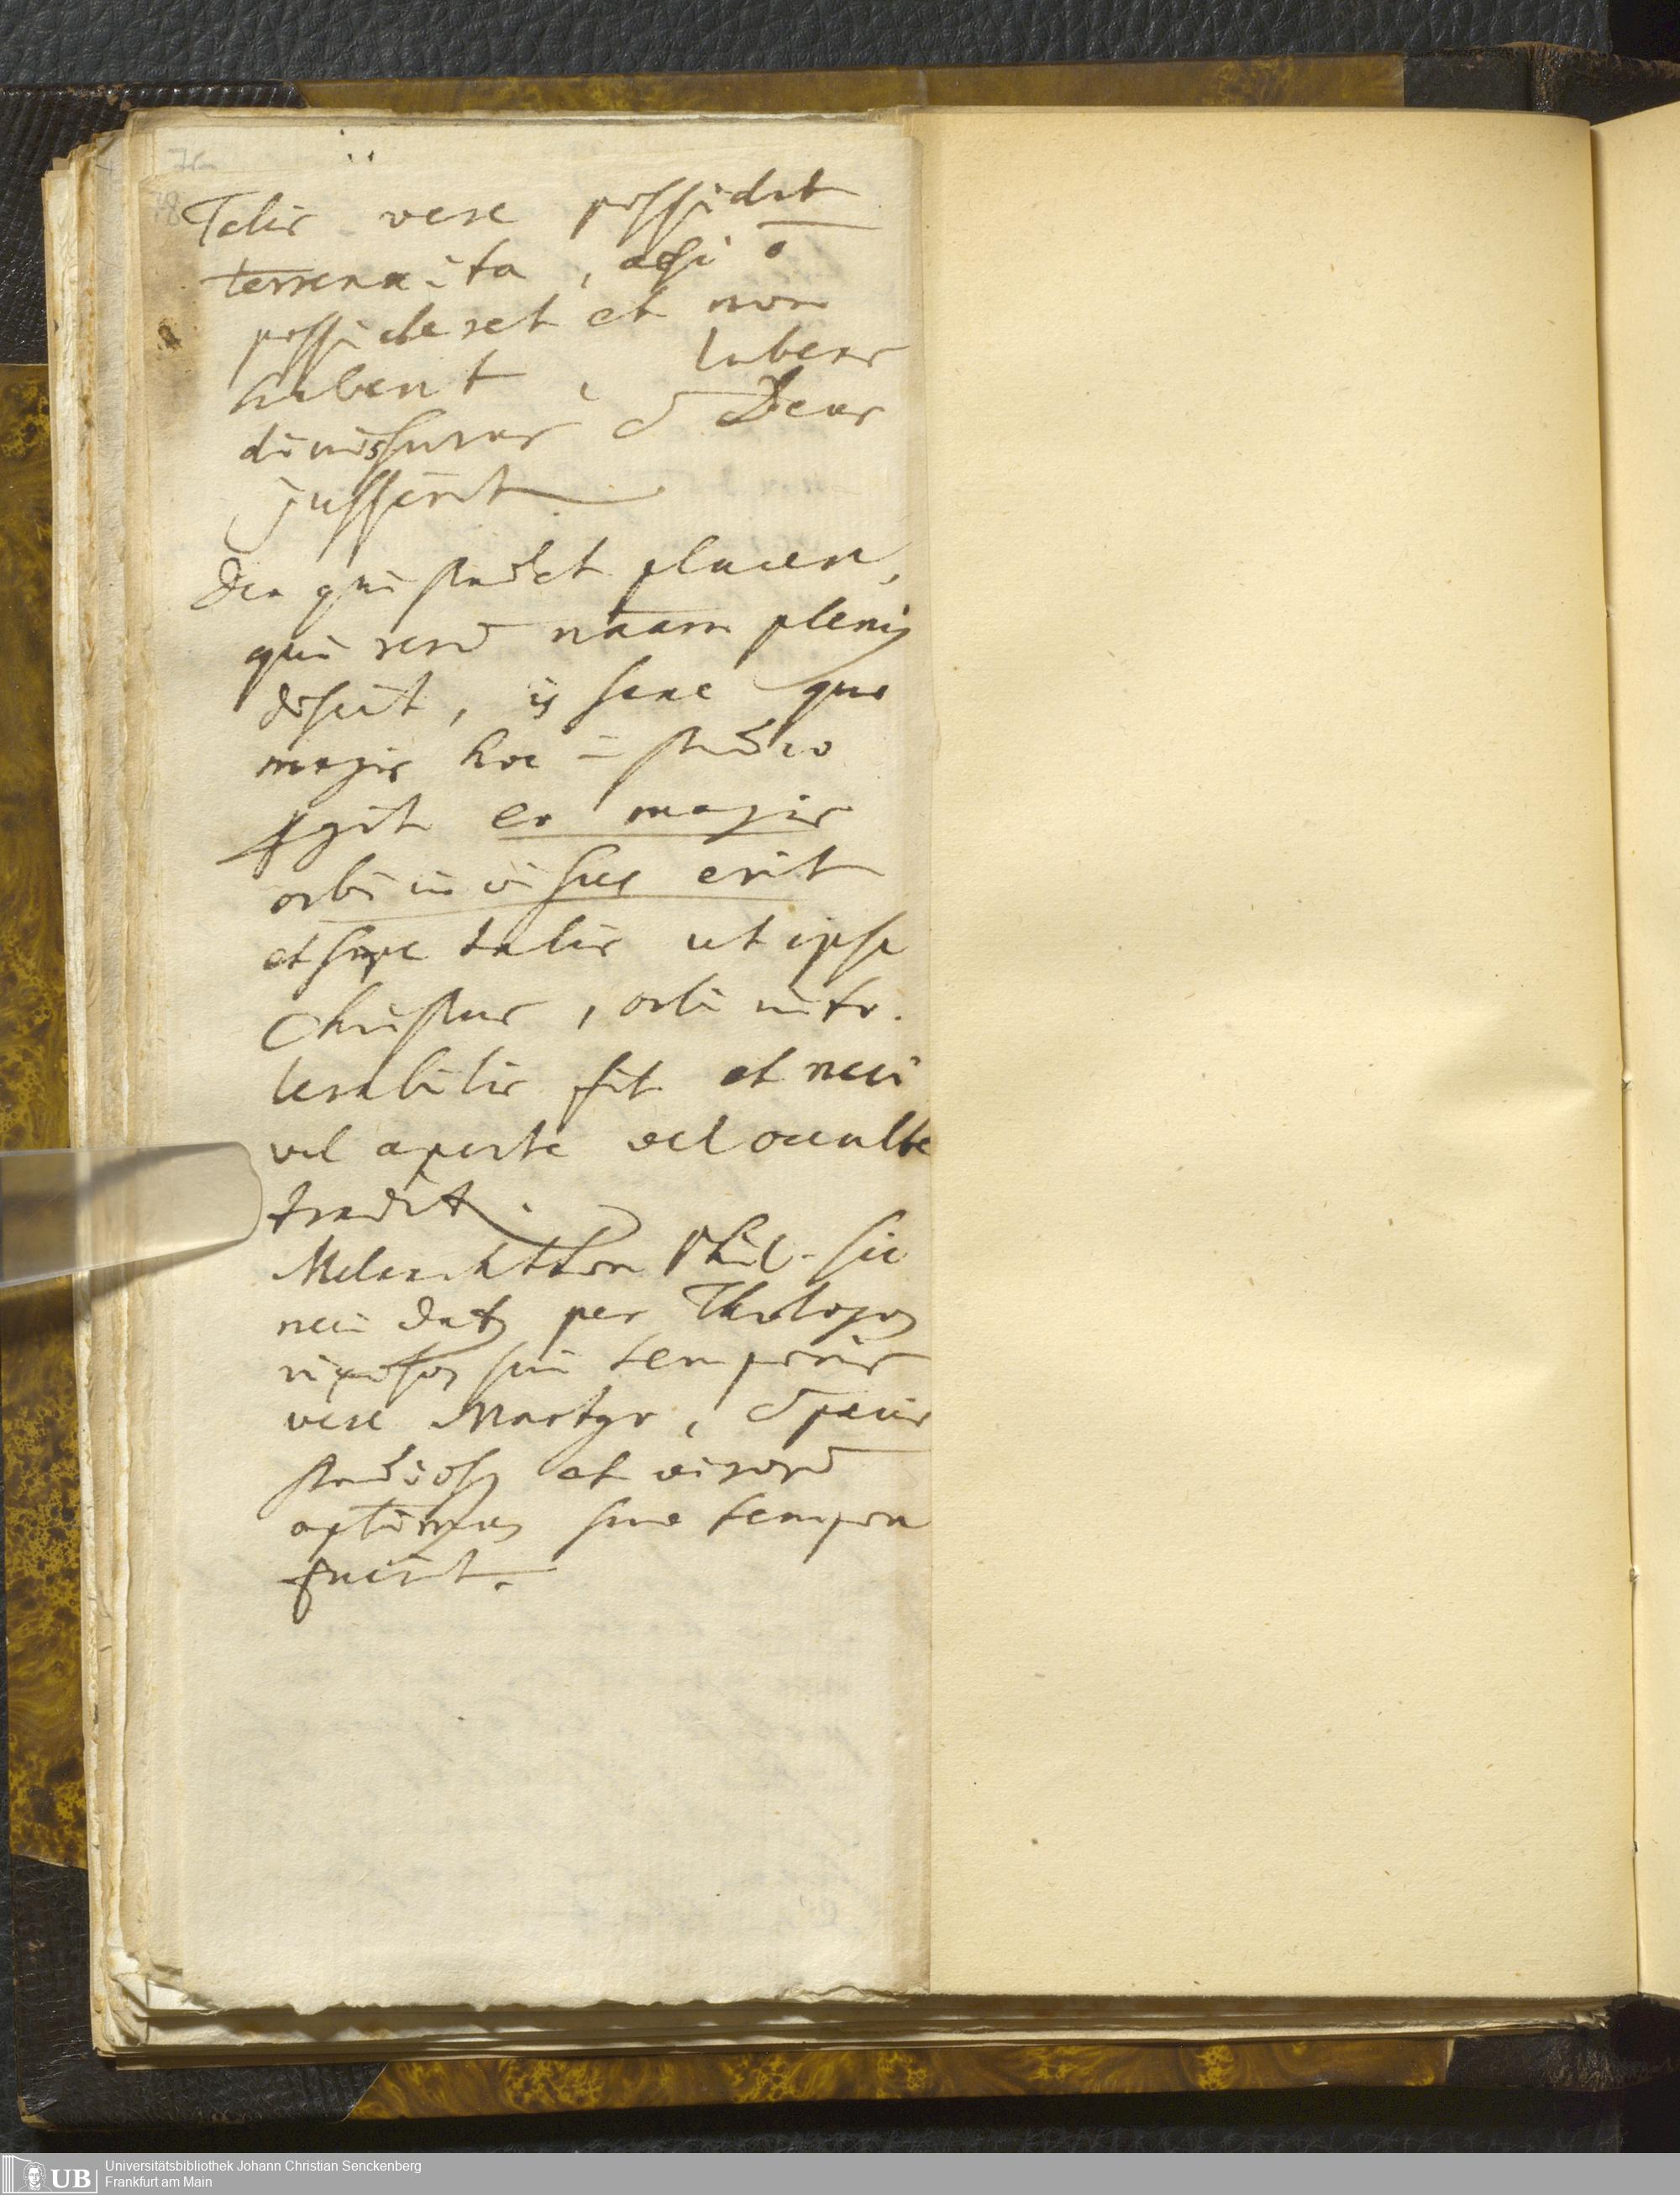 Talis vere possidet
terrena ita, acsi o
possideret et non
habent, lubens
dimissurus Deus
jusserit
Deo qui studet placere,
qui rerum naam plenis
is sane quo
magis hoc in studio
agit eo magis
orbi invisus erit
et sæpe talis ut ipse
Christus, orbi into-
lerabilis fit et neci
vel aperte vel occulte
tradit.
Melanchthon Phil. sic
neci datus per Theologos
rixosos sui temporis
vere Martyr, pacis
studiosus et virorum
optimus suo tempore
fuerit.
Universitätsbibliothek Johann Christian Senckenberg
Frankfurt am Main
UB